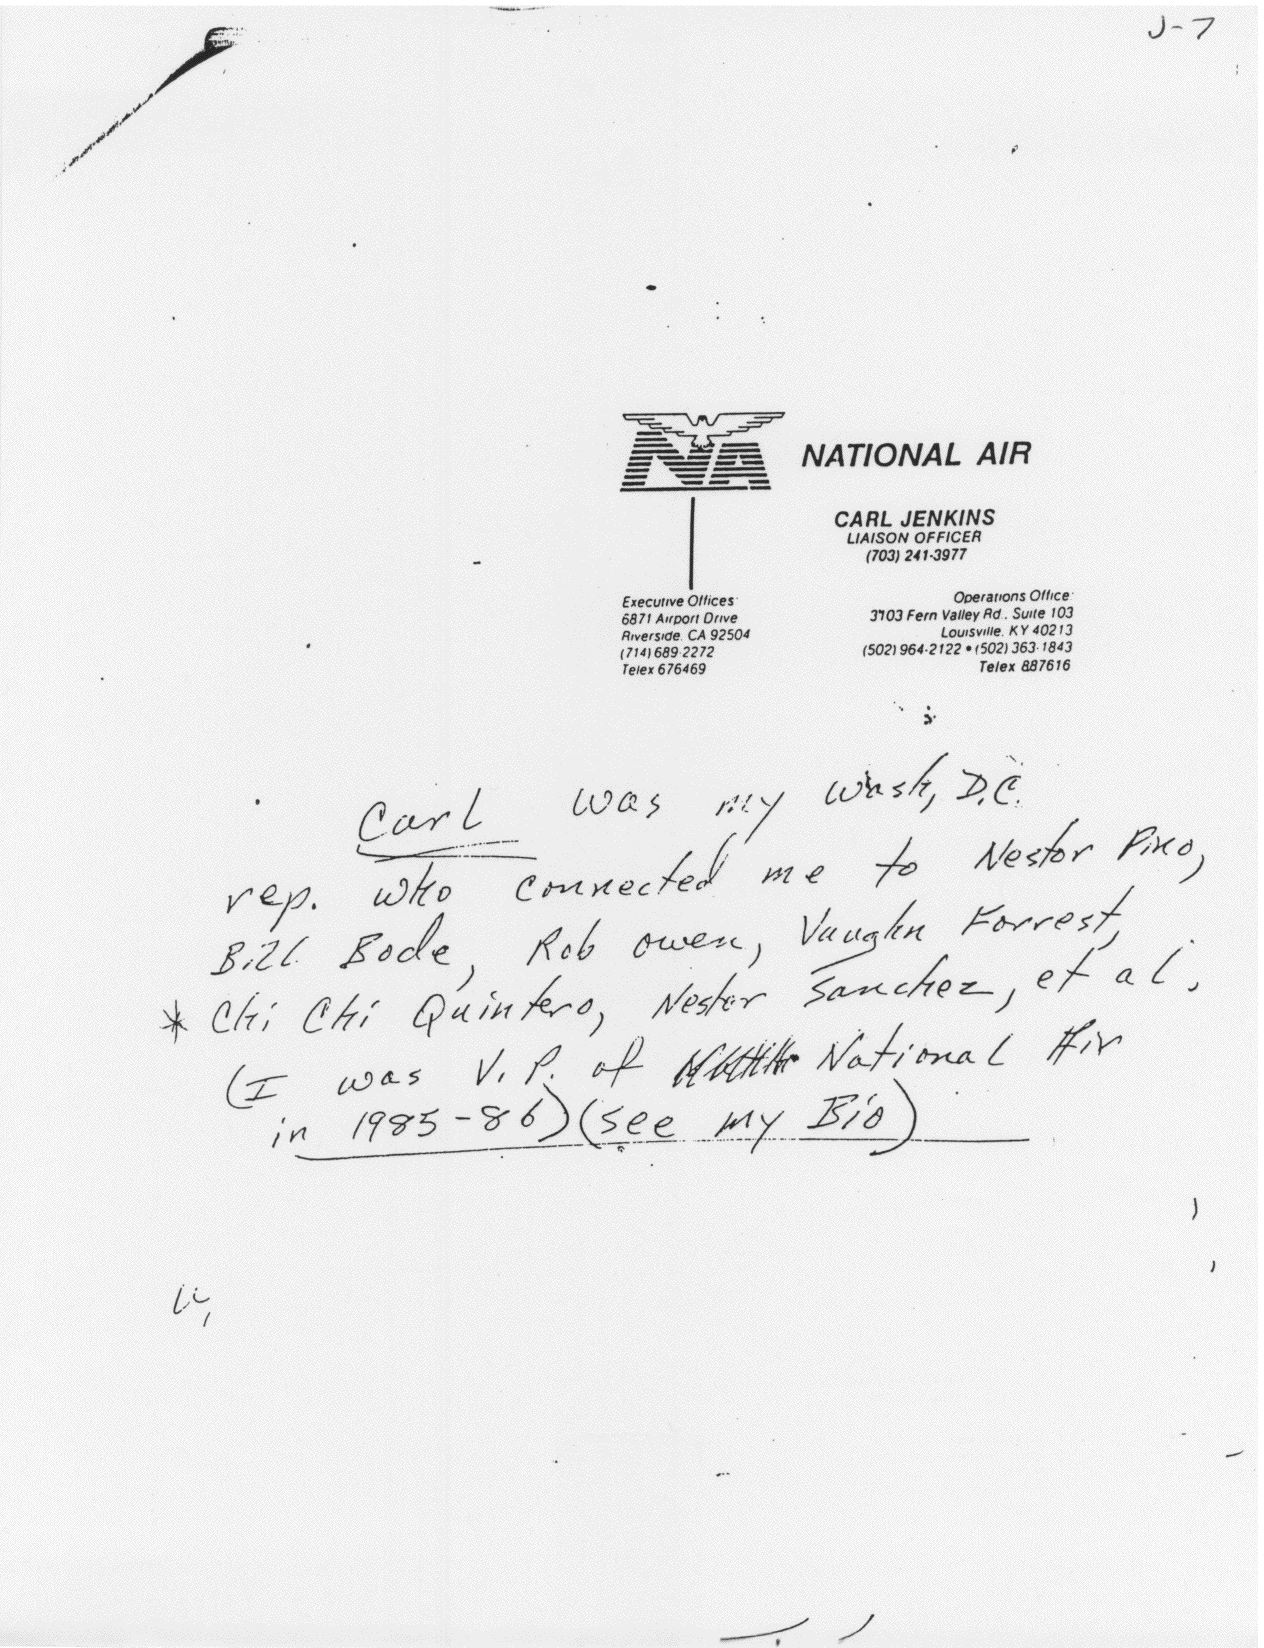 J-7
NA
NATIONAL AIR
CARL JENKINS
LIAISON OFFICER
(703) 241-3977
Executive Offices
6871 Airport Drive
Riverside, CA 92504
(714) 689-2272
Telex 676469
Operations Office
3103 Fern Valley Rd., Suite 103
Louisville, KY 40213
(502) 964-2122 • (502) 363-1843
Telex 887616
Carl was my Wash, D.C.
rep. who connected me to Nestor Pino,
Bill Bode, Rob Owen, Vaughn Forrest,
* Chi Chi Quintero, Nester Sanchez, et al.
(I was V.P. of National Air
in 1985-86) (see my Bio)